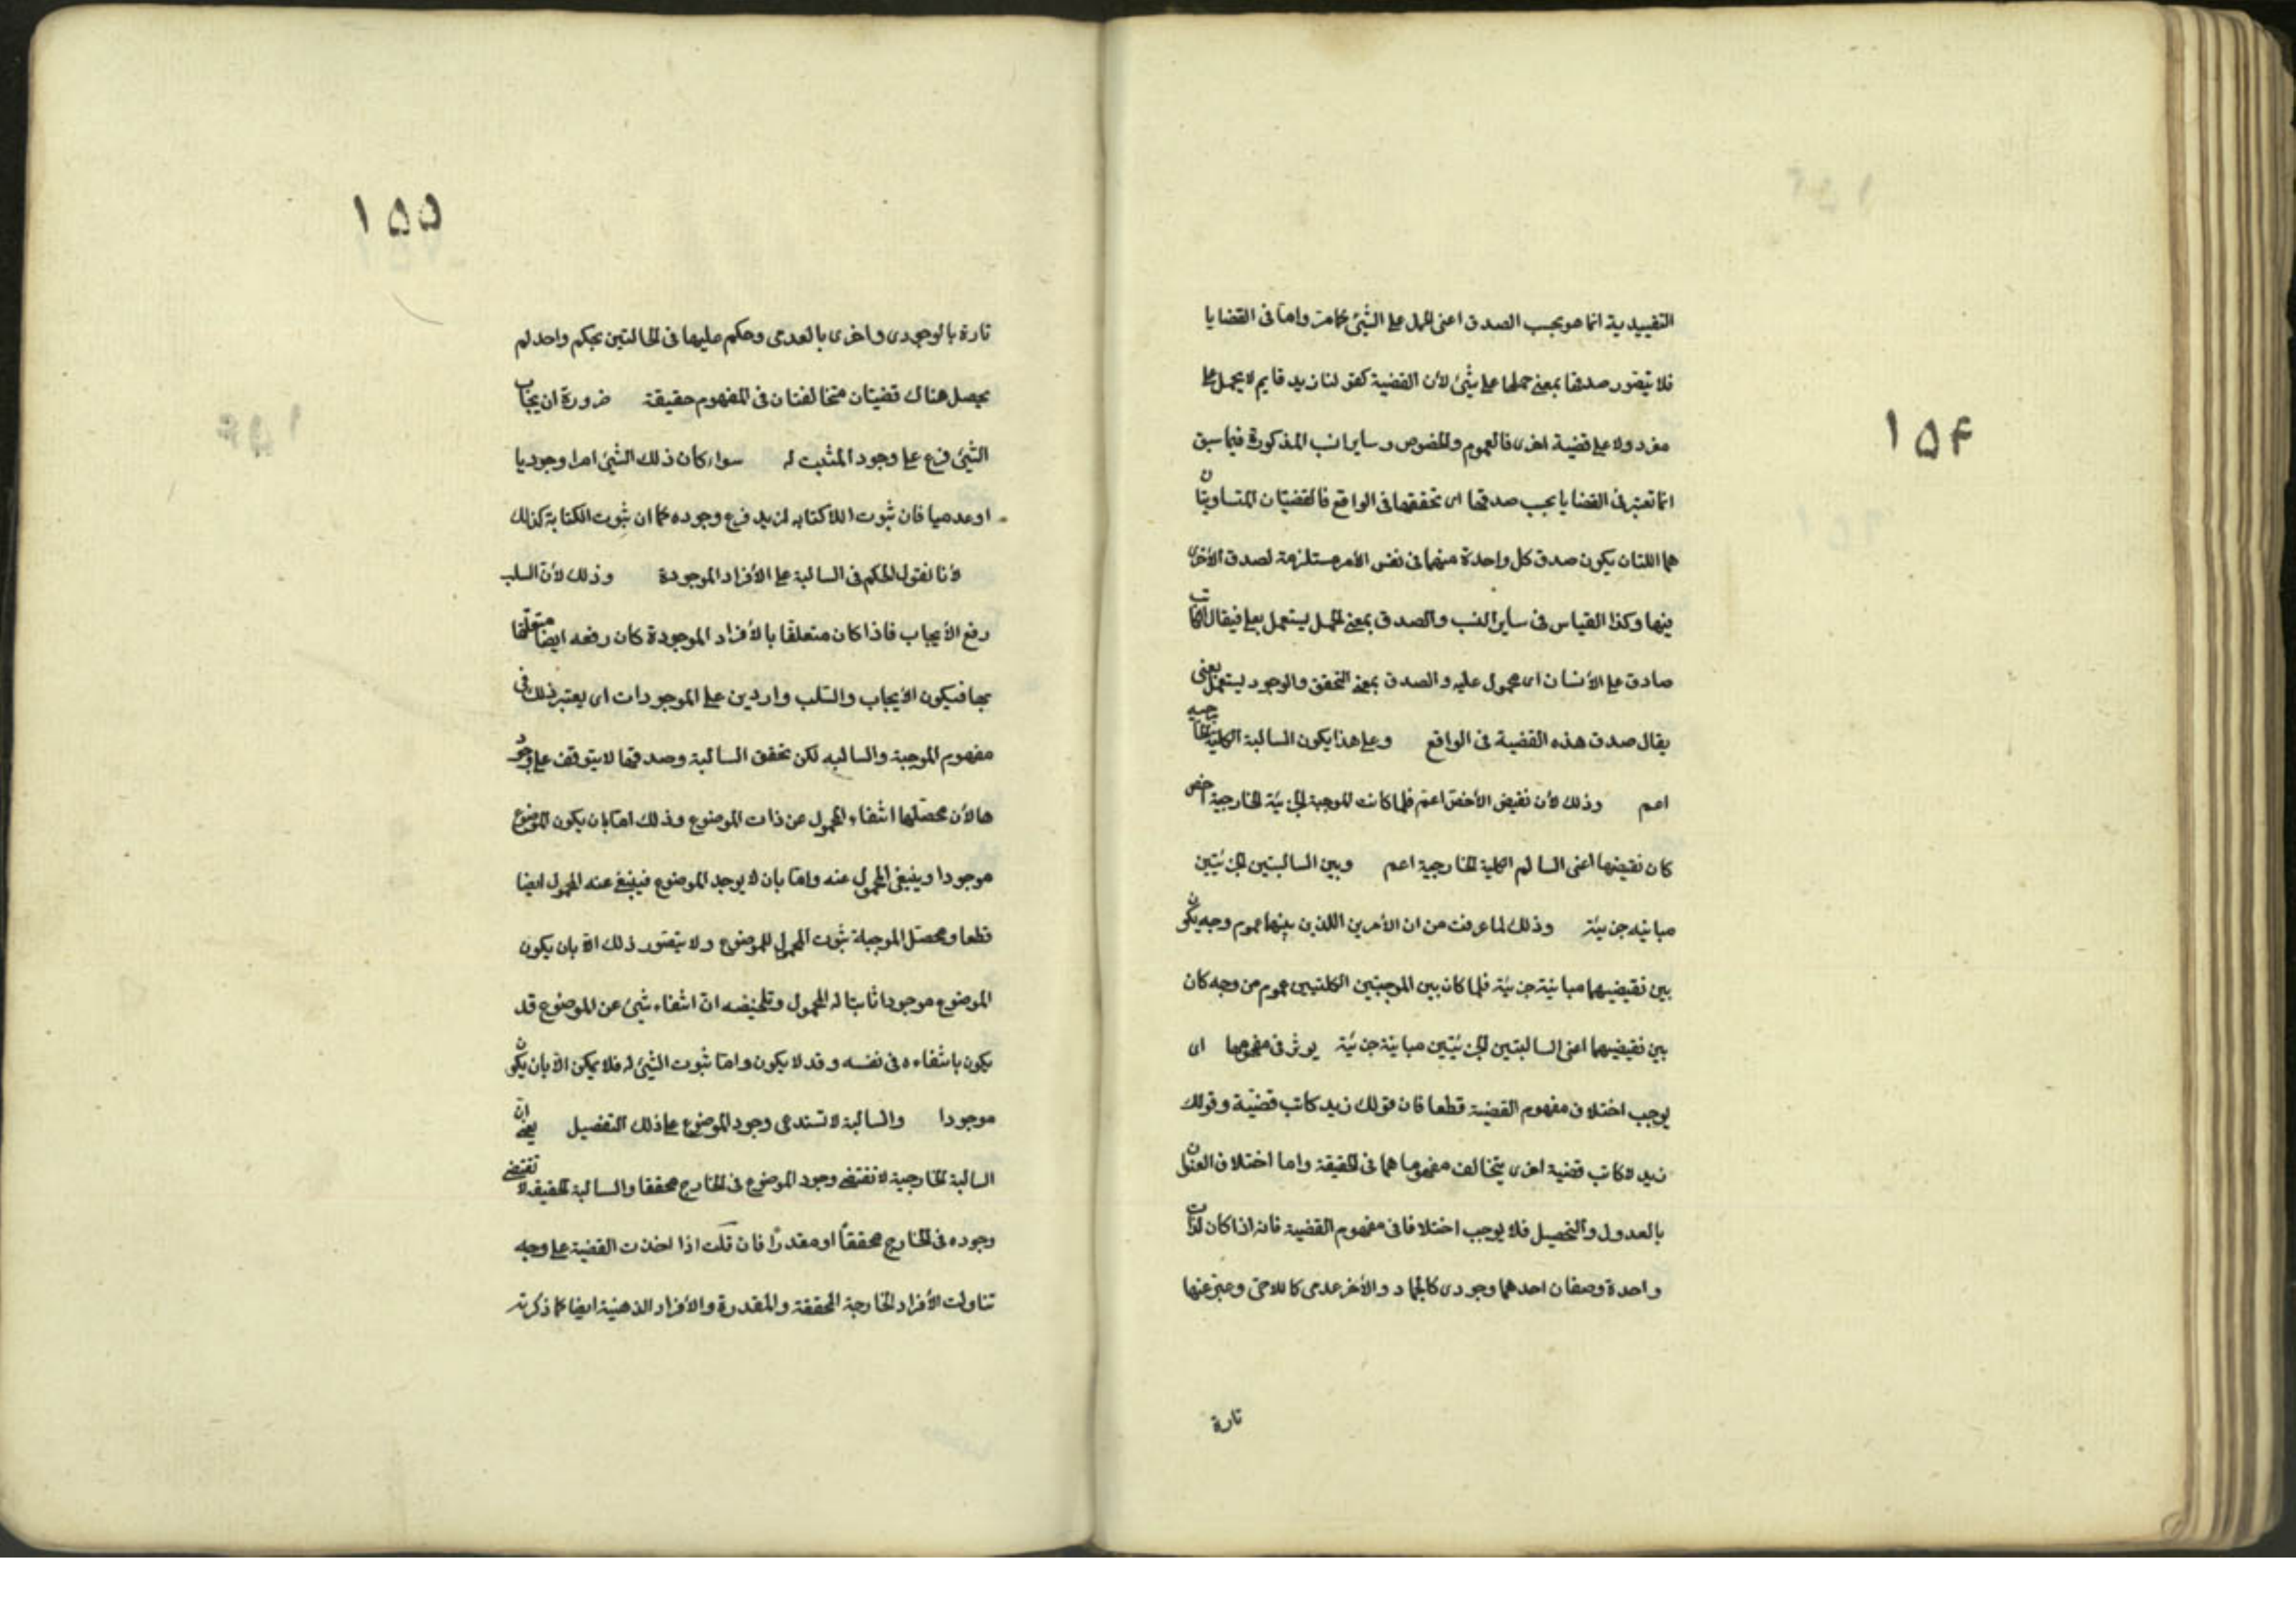 ١٥۴
التقييدية انما هو بحسب الصدق اعنى الحمل على الشئ كما مر واما فى القضايا
فلا يتصور صدقها بمعنى حملها على شئ لأن القضية كقولنا زيد قايم لا يحمل على
مفرد ولا على قضية اخرى فالعموم والخصوص وساير النسب المذكورة فيما سبق
انما تعتبر فى القضايا بحسب صدقها اى تحققها فى الواقع فالقضيتان المتساويتان
هما اللتان يكون صدق كل واحدة منهما فى نفس الأمر مستلزمة لصدق الأخرى
فيها وكذا القياس فى ساير النسب والصدق بمعنى الحمل يستعمل بعلى فيقال الكاتب
صادق على الأنسان اى محمول عليه والصدق بمعنى التحقق والوجود يستعمل بفى
يقال صدق هذه القضية فى الواقع وعلى هذا يكون السالبة الكلية الخارجية
اعم وذلك لأن نقيض الأخص اعم فلما كانت الموجبة الجزئية الخارجية اخص
كان نقيضها اعنى السالم الكلية الخارجية اعم وبين السالبتين الجزئيتين
مباينه جزئية وذلك لما عرفت من ان الأمرين اللذين بينهما عموم وجه يكون
بين نقيضيهما مباينة جزئية فلما كان بين الموجبتين الكلتيين عموم من وجه كان
بين نقيضيهما اعنى السالبتين الجزئيتين مباينة جزئية يوثر فى مفهومها اى
يوجب اختلاف مفهوم القضية قطعا فان قولك زيد كاتب قضية وقولك
زيد لا كاتب قضية اخرى يتخالف مفهوماهما فى الحقيقة واما اختلاف العنوان
بالعدول والتحصيل فلا يوجب اختلافا فى مفهوم القضية فانه اذا كان لذات
واحدة وصفان احدهما وجودى كالجماد والأخر عدمى كاللاحى وعبر عنها
تارة
١٥٥
تارة بالوجودى واخرى بالعدمى وحكم عليها فى الحالتين بحكم واحد لم
يحصل هناك قضيتان متخالفتان فى المفهوم حقيقة ضرورة ان يجاب
الشئ فرع على وجود المثبت له سواء كان ذلك الشئ امرا وجوديا
او عدميا فان ثبوت اللاكتابه لزيد فرع وجوده كما ان ثبوت الكتابة كذلك
لأنا نقول الحكم فى السالبة على الأفراد الموجودة وذلك لأن السلب
رفع الأيجاب فاذا كان متعلقا بالأفراد الموجودة كان رفعه ايضا متعلقا
بها فيكون الأيجاب والسلب واردين على الموجودات اى يعتبر ذلك فى
مفهوم الموجبة والسالبه لكن تحقق السالبة وصدقها لا يتوقف على وجود
ها لأن محصلها انتفاء المحمول عن ذات الموضوع وذلك اما بان يكون الموضوع
موجودا وينبغى المحمول عنه واما بان لا يوجد الموضوع فينبغى عنه المحمول ايضا
قطعا ومحصل الموجبة ثبوت المحمول للموضوع ولا يتصور ذلك الا بان يكون
الموضوع موجودا ثابتا له المحمول وتلخيصه ان انتفاء شئ عن الموضوع قد
يكون بانتفاءه فى نفسه وقد لا يكون واما ثبوت الشئ له فلا يمكن الا بان يكون
موجودا والسالبة لا تستدعى وجود الموضوع على ذلك التفصيل يعنى ان
السالبة الخارجية لا تقتضى وجود الموضوع فى الخارج محققا والسالبة الحقيقه لا تقتضى
وجوده فى الخارج محققاً او مقدرًا فان قلت اذا اخذت القضية على وجه
تناولت الأفراد الخارجة المحققة والمقدرة والأفراد الذهنية ايضا كما ذكرته